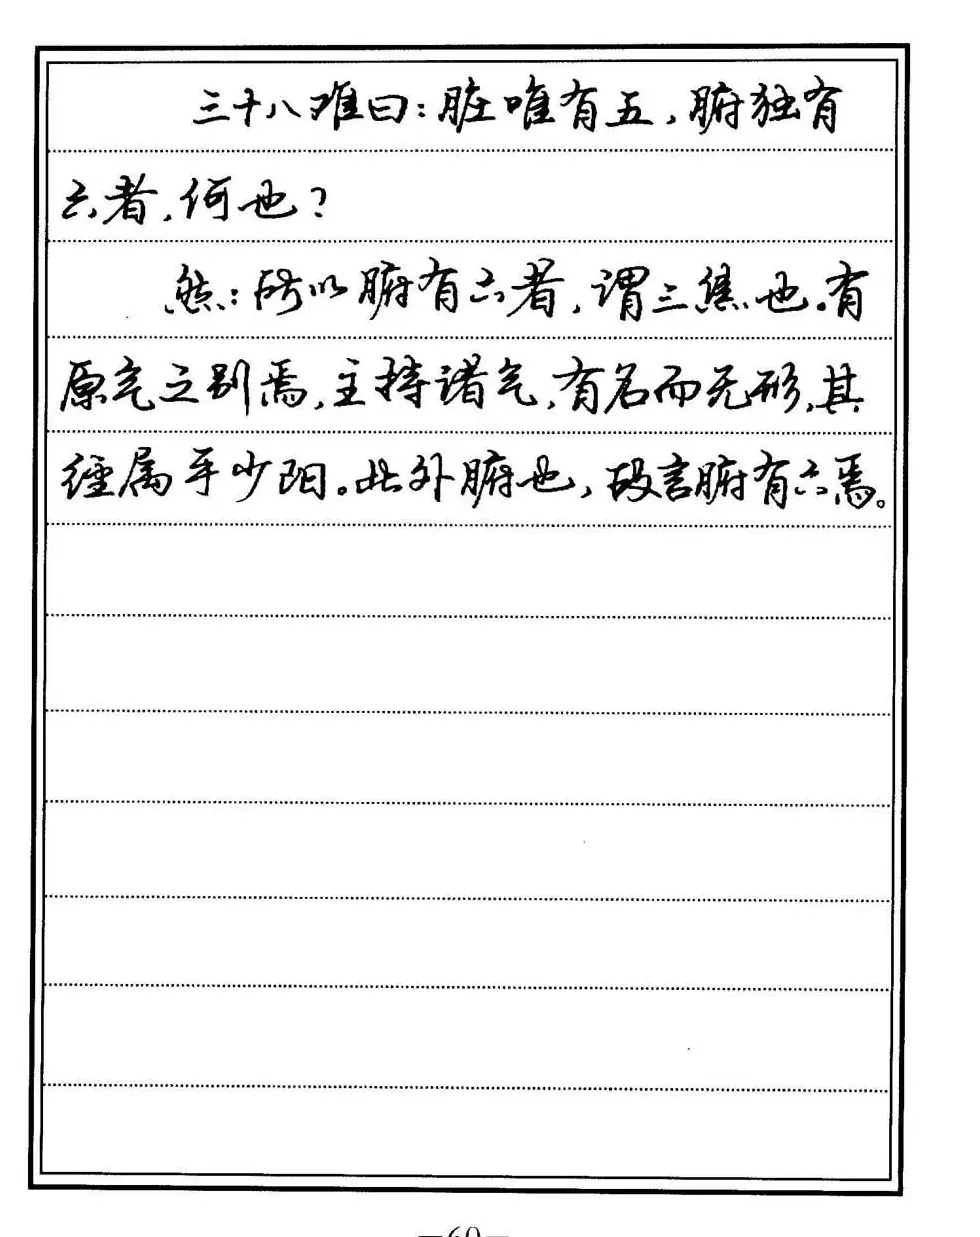 三十八难曰：脏唯有五，腑独有
六者，何也？
然：所以腑有六者，谓三焦也。有
原气之别焉，主持诸气，有名而无形，其
经属手少阳。此外腑也，故言腑有六焉。
—60—